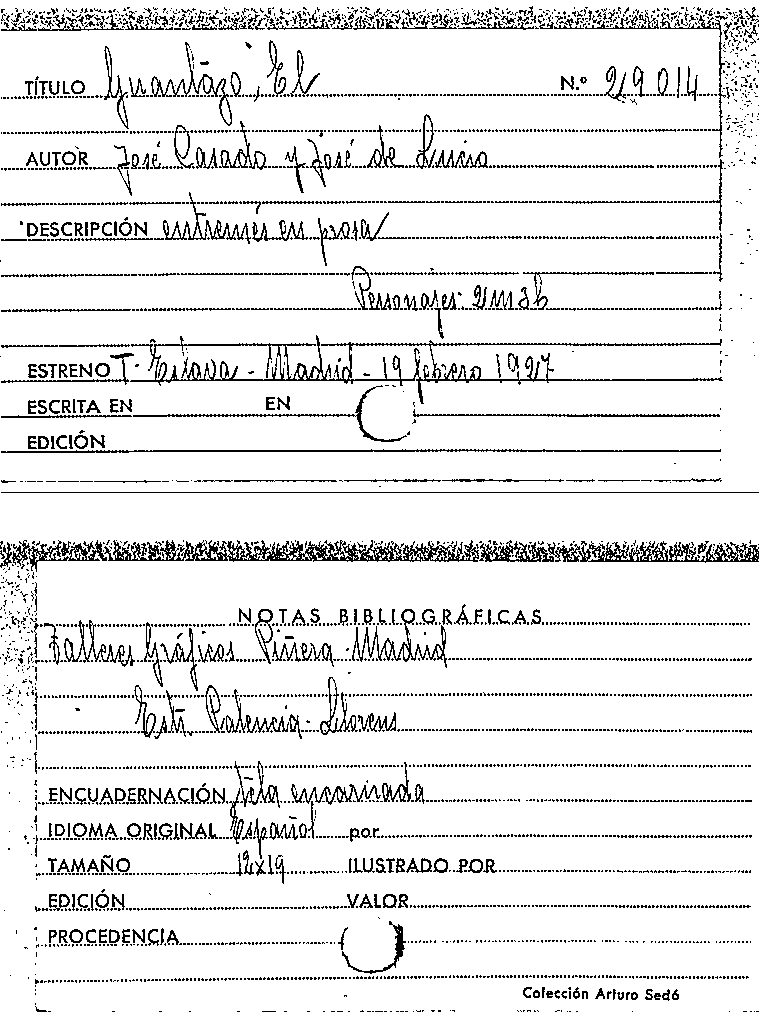 TÍTULO Guantazo, El N.º 29014
AUTOR José Casado y José de Lucio
DESCRIPCIÓN entremés en prosa
Personajes: 2m3h
ESTRENO T. Eslava - Madrid - 19 febrero 1927
ESCRITA EN EN
EDICIÓN
NOTAS BIBLIOGRÁFICAS
Talleres Gráficos Piñera - Madrid
Estr. Palencia - Llorens
ENCUADERNACIÓN tela encarnada
IDIOMA ORIGINAL Español por
TAMAÑO 12x19 ILUSTRADO POR
EDICIÓN VALOR
PROCEDENCIA
Colección Arturo Sedó